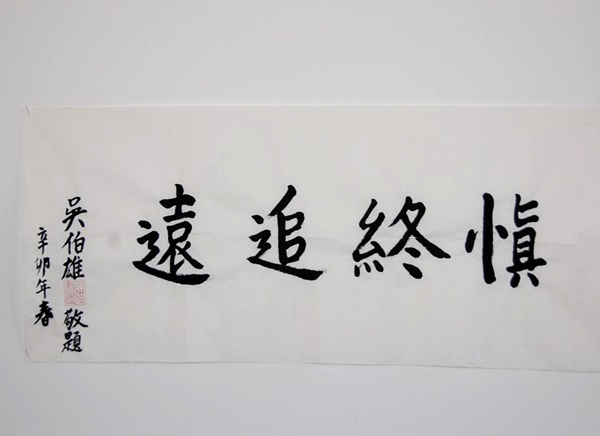 慎終追遠
吳伯雄 敬題
辛卯年春